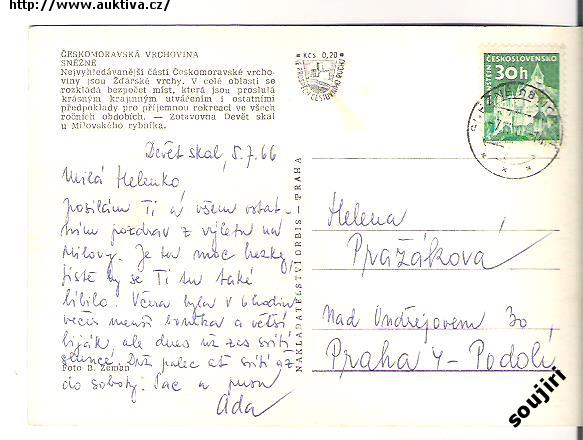 http://www.auktiva.cz/
ČESKOMORAVSKÁ VRCHOVINA
SNĚŽNÉ
Nejvyhledávanější částí Českomoravské vrcho-
viny jsou Žďárské vrchy. V celé oblasti se
rozkládá bezpočet míst, která jsou proslulá
krásným krajinným utvářením i ostatními
předpoklady pro příjemnou rekreaci ve všech
ročních obdobích. — Zotavovna Devět skal
u Milovského rybníka.
Kčs 0,20
ČESKOSLOVENSKO
30h
Devět skal, 5.7.66
Milá Helenko,
posílám Ti a všem ostat-
ním pozdrav z výletu na
Milovy. Je tu moc hezky,
jistě by se Ti tu také
líbilo. Včera byla v 6 hodin
večer menší bouřka a větší
liják, ale dnes už zas svítí
slunce. Drž palec ať svítí až
do soboty. Pac a pusu
Ada
Foto B. Zeman
NAKLADATELSTVÍ ORBIS — PRAHA
Helena
Pražáková
Nad Ondřejovem 30
Praha 4 - Podolí
soujiri